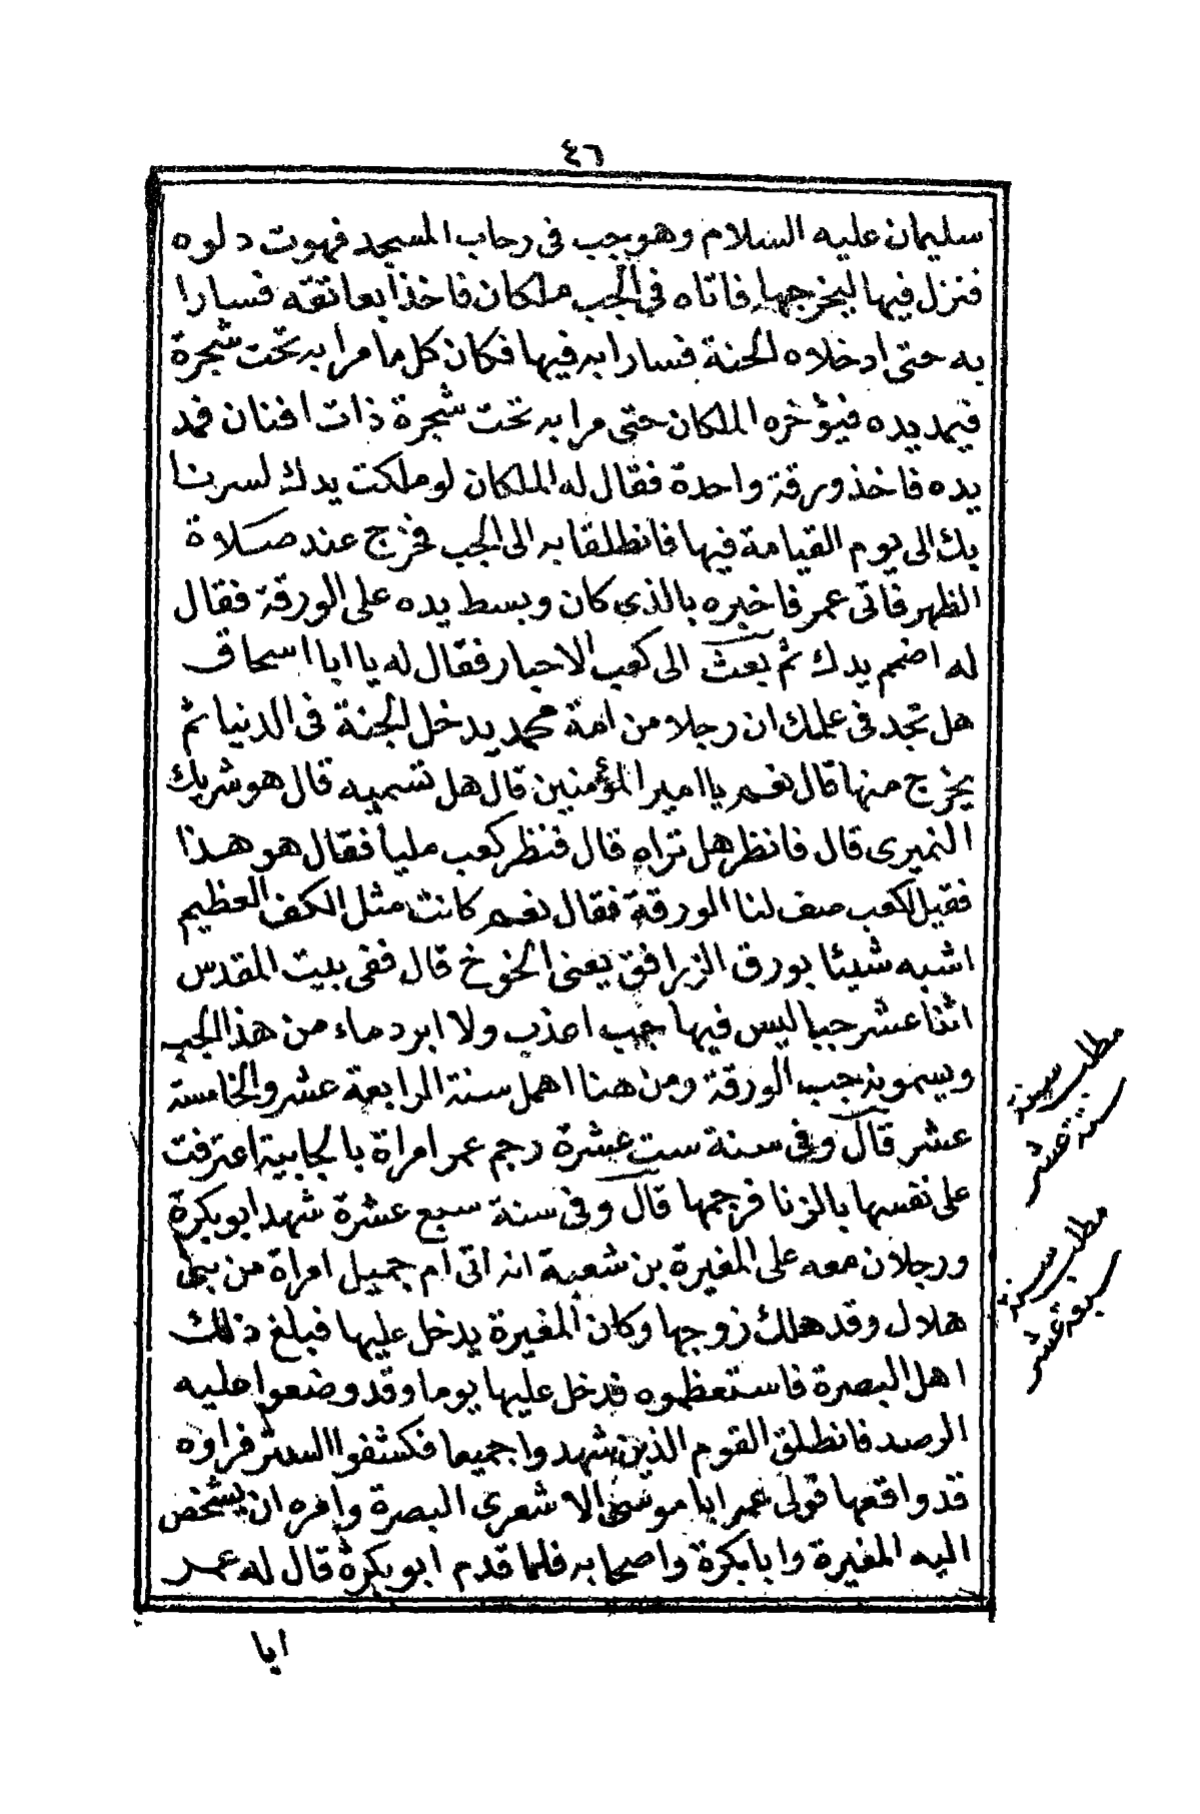 ٤٦
سليمان عليه السلام وهو جب فى رحاب المسجد فهوت دلوه
فنزل فيها ليخرجها فاتاه فى الجب ملكان فاخذا بعاتقه فسارا
به حتى ادخلاه الجنة فسارا به فيها فكان كل ما مرا به تحت شجرة
فيمد يده فيؤخره الملكان حتى مرا به تحت شجرة ذات افنان فمد
يده فاخذ ورقة واحدة فقال له الملكان لو ملكت يدك لسرنا
بك الى يوم القيامة فيها فانطلقا به الى الجب فخرج عند صلاة
الظهر فاتى عمر فاخبره بالذى كان وبسط يده على الورقة فقال
له اضمم يدك ثم بعث الى كعب الاحبار فقال له يا ابا اسحاق
هل تجد فى علمك ان رجلا من امة محمد يدخل الجنة فى الدنيا ثم
يخرج منها قال نعم يا امير المؤمنين قال هل تسميه قال هو شريك
النميرى قال فانظر هل تراه قال فنظر كعب مليا فقال هو هذا
فقيل لكعب صف لنا الورقة فقال نعم كانت مثل الكف العظيم
اشبه شيئا بورق الزرافق يعنى الخوخ قال ففى بيت المقدس
اثنا عشر جبا ليس فيها جب اعذب ولا ابرد ماء من هذ الجب
ويسمونه جب الورقة ومن هنا اهمل سنة الرابعة عشر والخامسة
عشر قال وفى سنة ست عشرة رجم عمر امراة بالجابية اعترفت
على نفسها بالزنا فرجمها قال وفى سنة سبع عشرة شهد ابو بكرة
ورجلان معه على المغيرة بن شعبة انه اتى ام جميل امراة من بنى
هلال وقد هلك زوجها وكان المغيرة يدخل عليها فبلغ ذلك
اهل البصرة فاستعظموه فدخل عليها يوما وقد وضعوا عليه
الرصد فانطلق القوم الذين شهدوا جميعا فكشفوا الستر فراوه
قد واقعها فولى عمر ابا موسى الاشعرى البصرة وامره ان يشخص
اليه المغيرة وابا بكرة واصحابه فلما قدم ابو بكرة قال له عمر
ابا
مطلب سنة
ستة عشر
مطلب سنة
سبعة عشر